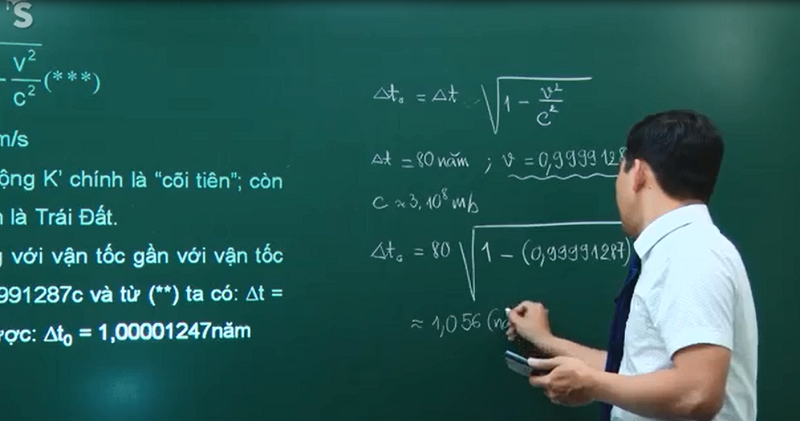 S
v²/c² (***)
m/s
ộng K' chính là "cõi tiên"; còn
là Trái Đất.
với vận tốc gần với vận tốc
991287c và từ (**) ta có: Δt =
ược: Δt₀ = 1,00001247năm
Δt₀ = Δt √(1 - v²/c²)
Δt = 80 năm ; v = 0,9999128
c ≈ 3,10⁸ m/s
Δt₀ = 80 √(1 - (0,99991287)
≈ 1,056 (nă